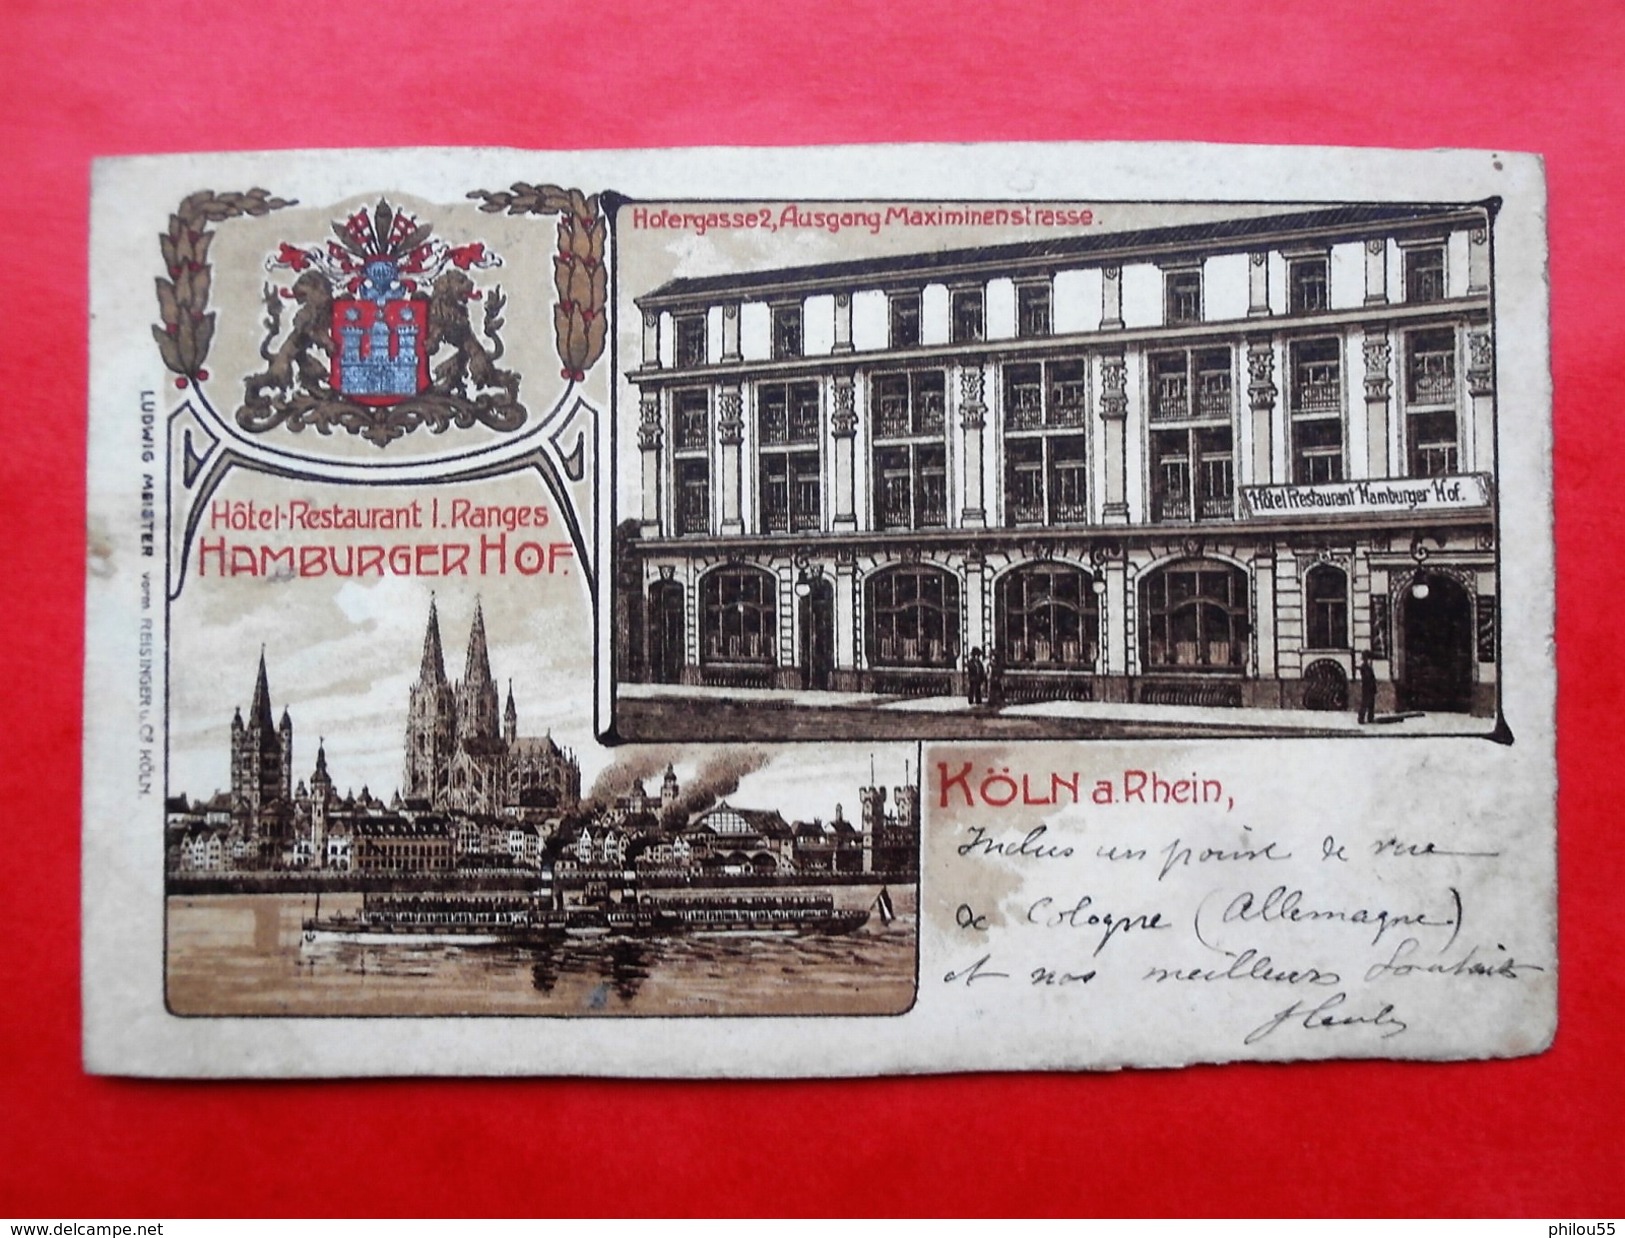 Hofergasse 2, Ausgang Maximinenstrasse.
Hôtel Restaurant Hamburger Hof.
Hôtel-Restaurant I. Ranges
HAMBURGER HOF.
LUDWIG MEISTER vorm. REISINGER u. Co KÖLN.
KÖLN a. Rhein,
Inclus un de vue
de Cologne (Allemagne)
et nos meilleurs Souhaits
delcampe.net
philou55